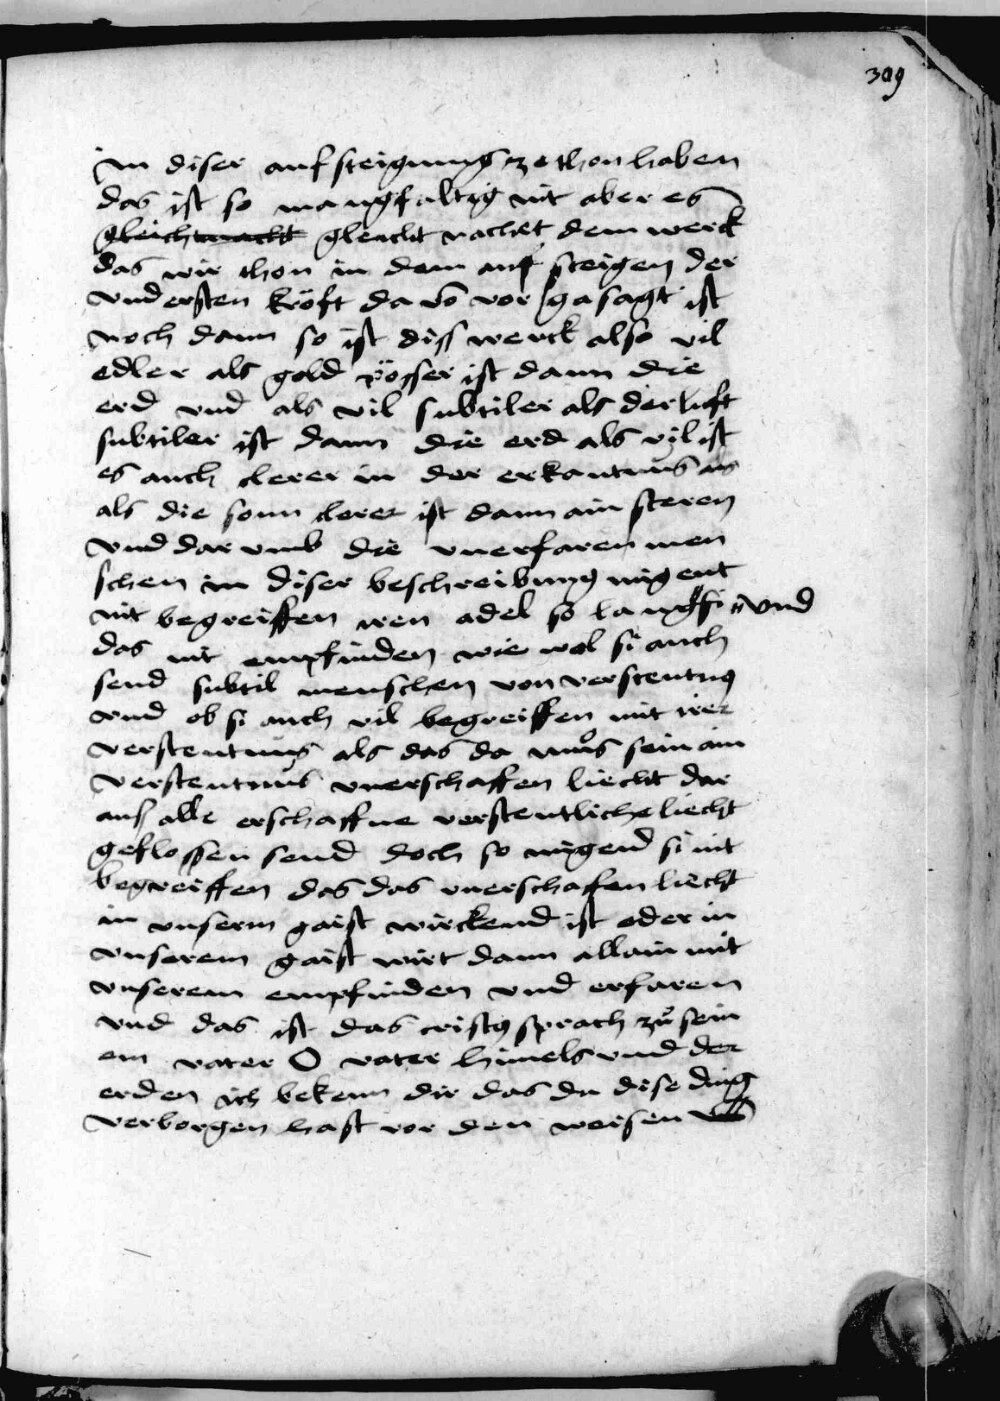 309
in diser aufsteigung ze thon haben
das ist so mangfaltig nit aber es
gleichtnacht gleacht nachet dem werck
das wir thon in dem auf steigen der
vndersten kröft da võ vor gasagt ist
noch dann so ist diss werck also vil
edler als gold pösser ist dann die
erd vnd als vil subtiler als der luft
subtiler ist dann die erd als vil ist
es auch clerer in der erkantnus
als die sonn clerer ist dann ain steren
vnd dar vmb die vnerfaren men
schen in diser beschreibung migent
nit begreiffen iren adel so lang si vnd
das nit empfinden wie wol si auch
send subtil menschen von verstentnus
vnd ob si auch vil begreiffen mit irer
verstentnus als das da můs sein ain
verstentnus vnerschaffen liecht dar
auß alle erschaffne verstentliche liecht
geflossen send doch so migend si nit
begreiffen das das vnerschaffen liecht
in vnserm gaist wirckend ist oder in
vnserem gaist wirt dann allain mit
vnserem empfinden vnd erfaren
vnd das ist das cristus sprach zů sein
em vater O vater himels vnd der
erden ich bekenn dir das du dise ding
verborgen hast vor den weisen